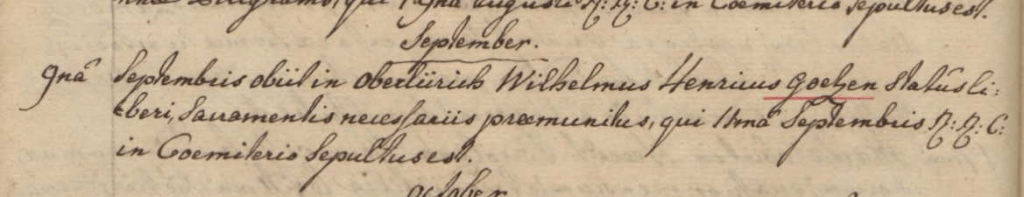 qui augusti R: R: C: in Coemiterio sepultus est.
September.
9nâ Septembris obiit in oberlürick Wilhelmus Henricus Goetzen status li:
:beri, Sacramentis necessariis praemunitus, qui 11mâ Septembris R: R: C:
in Coemiterio sepultus est.
october